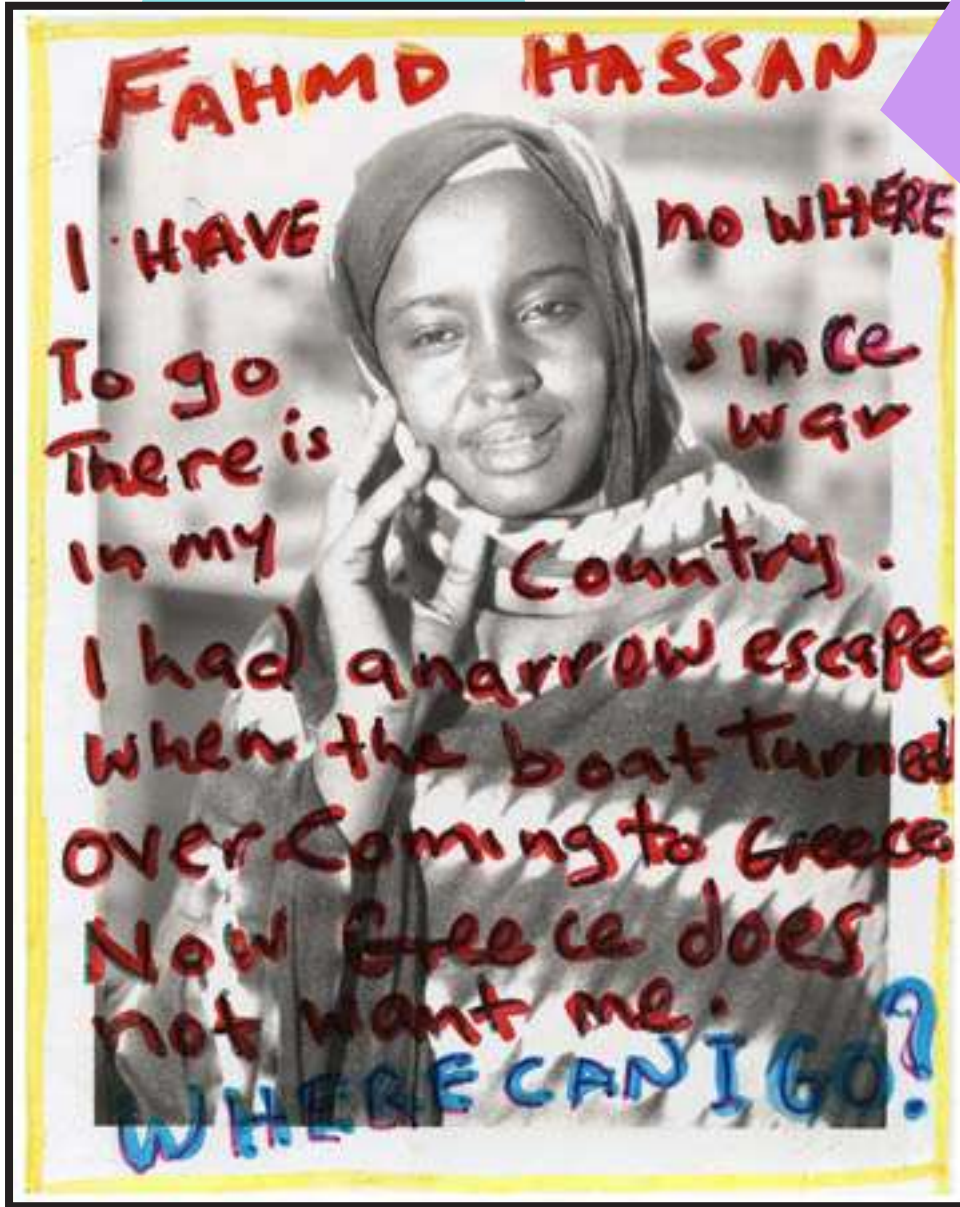 FAHMD HASSAN
I HAVE no WHERE
To go since
There is war
In my Country.
I had a narrow escape
when the boat Turned
over Coming to Greece
Now Greece does
not want me.
WHERE CAN I GO?